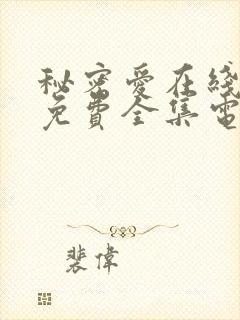 秘密爱在线
免費全集電
裴偉